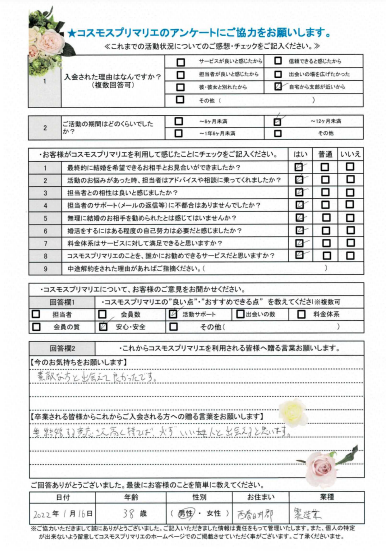 ★コスモスプリマリエのアンケートにご協力をお願いします。
≪これまでの活動状況についてのご感想・チェックをご記入ください。≫
1 入会された理由はなんですか？（複数回答可）
サービスが良いと感じたから 信頼できると感じたから
担当者が良いと感じたから 出会いの場を広げたかった
彼・彼女と別れたから 自宅から支部が近いから
その他（ ）
2 ご活動の期間はどのくらいでしたか？
～6ヶ月未満 ～12ヶ月未満
～1年6ヶ月未満 その他
・お客様がコスモスプリマリエを利用して感じたことにチェックをご記入ください。 はい 普通 いいえ
1 最終的に結婚を希望できるお相手とお見合いができましたか？
2 活動のお悩みがあった時、担当者はアドバイスや相談に乗ってくれましたか？
3 担当者との相性は良いと感じましたか？
4 担当者のサポート（メールの返信等）に不都合はありませんでしたか？
5 無理に結婚のお相手を勧められたとは感じてはいませんか？
6 婚活をするにはある程度の自己努力は必要だと感じましたか？
7 料金体系はサービスに対して満足できると思いますか？
8 コスモスプリマリエのことを、誰かにお勧めできるサービスだと思いますか？
9 中途解約をされた理由があればご指摘ください。（ ）
・コスモスプリマリエについて、お客様のご意見をお聞かせください。
回答欄1 ・コスモスプリマリエの"良い点"・"おすすめできる点" を教えてください※複数可
担当者 会員数 活動サポート 出会いの数 料金体系
会員の質 安心・安全 その他（ ）
回答欄2 ・これからコスモスプリマリエを利用される皆様へ贈る言葉お願いします。
【今のお気持ちをお願いします】
素敵な方と出会えて良かったです。
【卒業される皆様からこれからご入会される方への贈る言葉をお願いします】
必ず いい相手と出会えると思います。
ご回答ありがとうございました。最後にお客様のことを簡単に教えてください。
日付 年齢 性別 お住まい 業種
2022年1月16日 38歳 （男性・女性）
※ご協力いただきまして誠にありがとうございました。ご記入いただきました情報は責任をもって管理いたします。また、個人の特定
が出来ないよう留意してコスモスプリマリエのホームページでのご掲載させていただく事がございます。ご了承くださいませ。